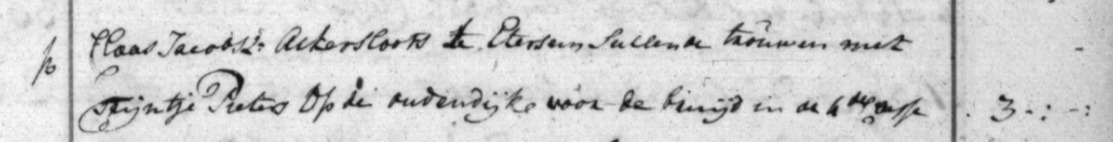 Claas Jacobsz: Ackersloots te Etersem Sullende trouwen met
Trijntje Pieters Op de oudendijke voor de bruijd in de 4de classe . 3 - : - :